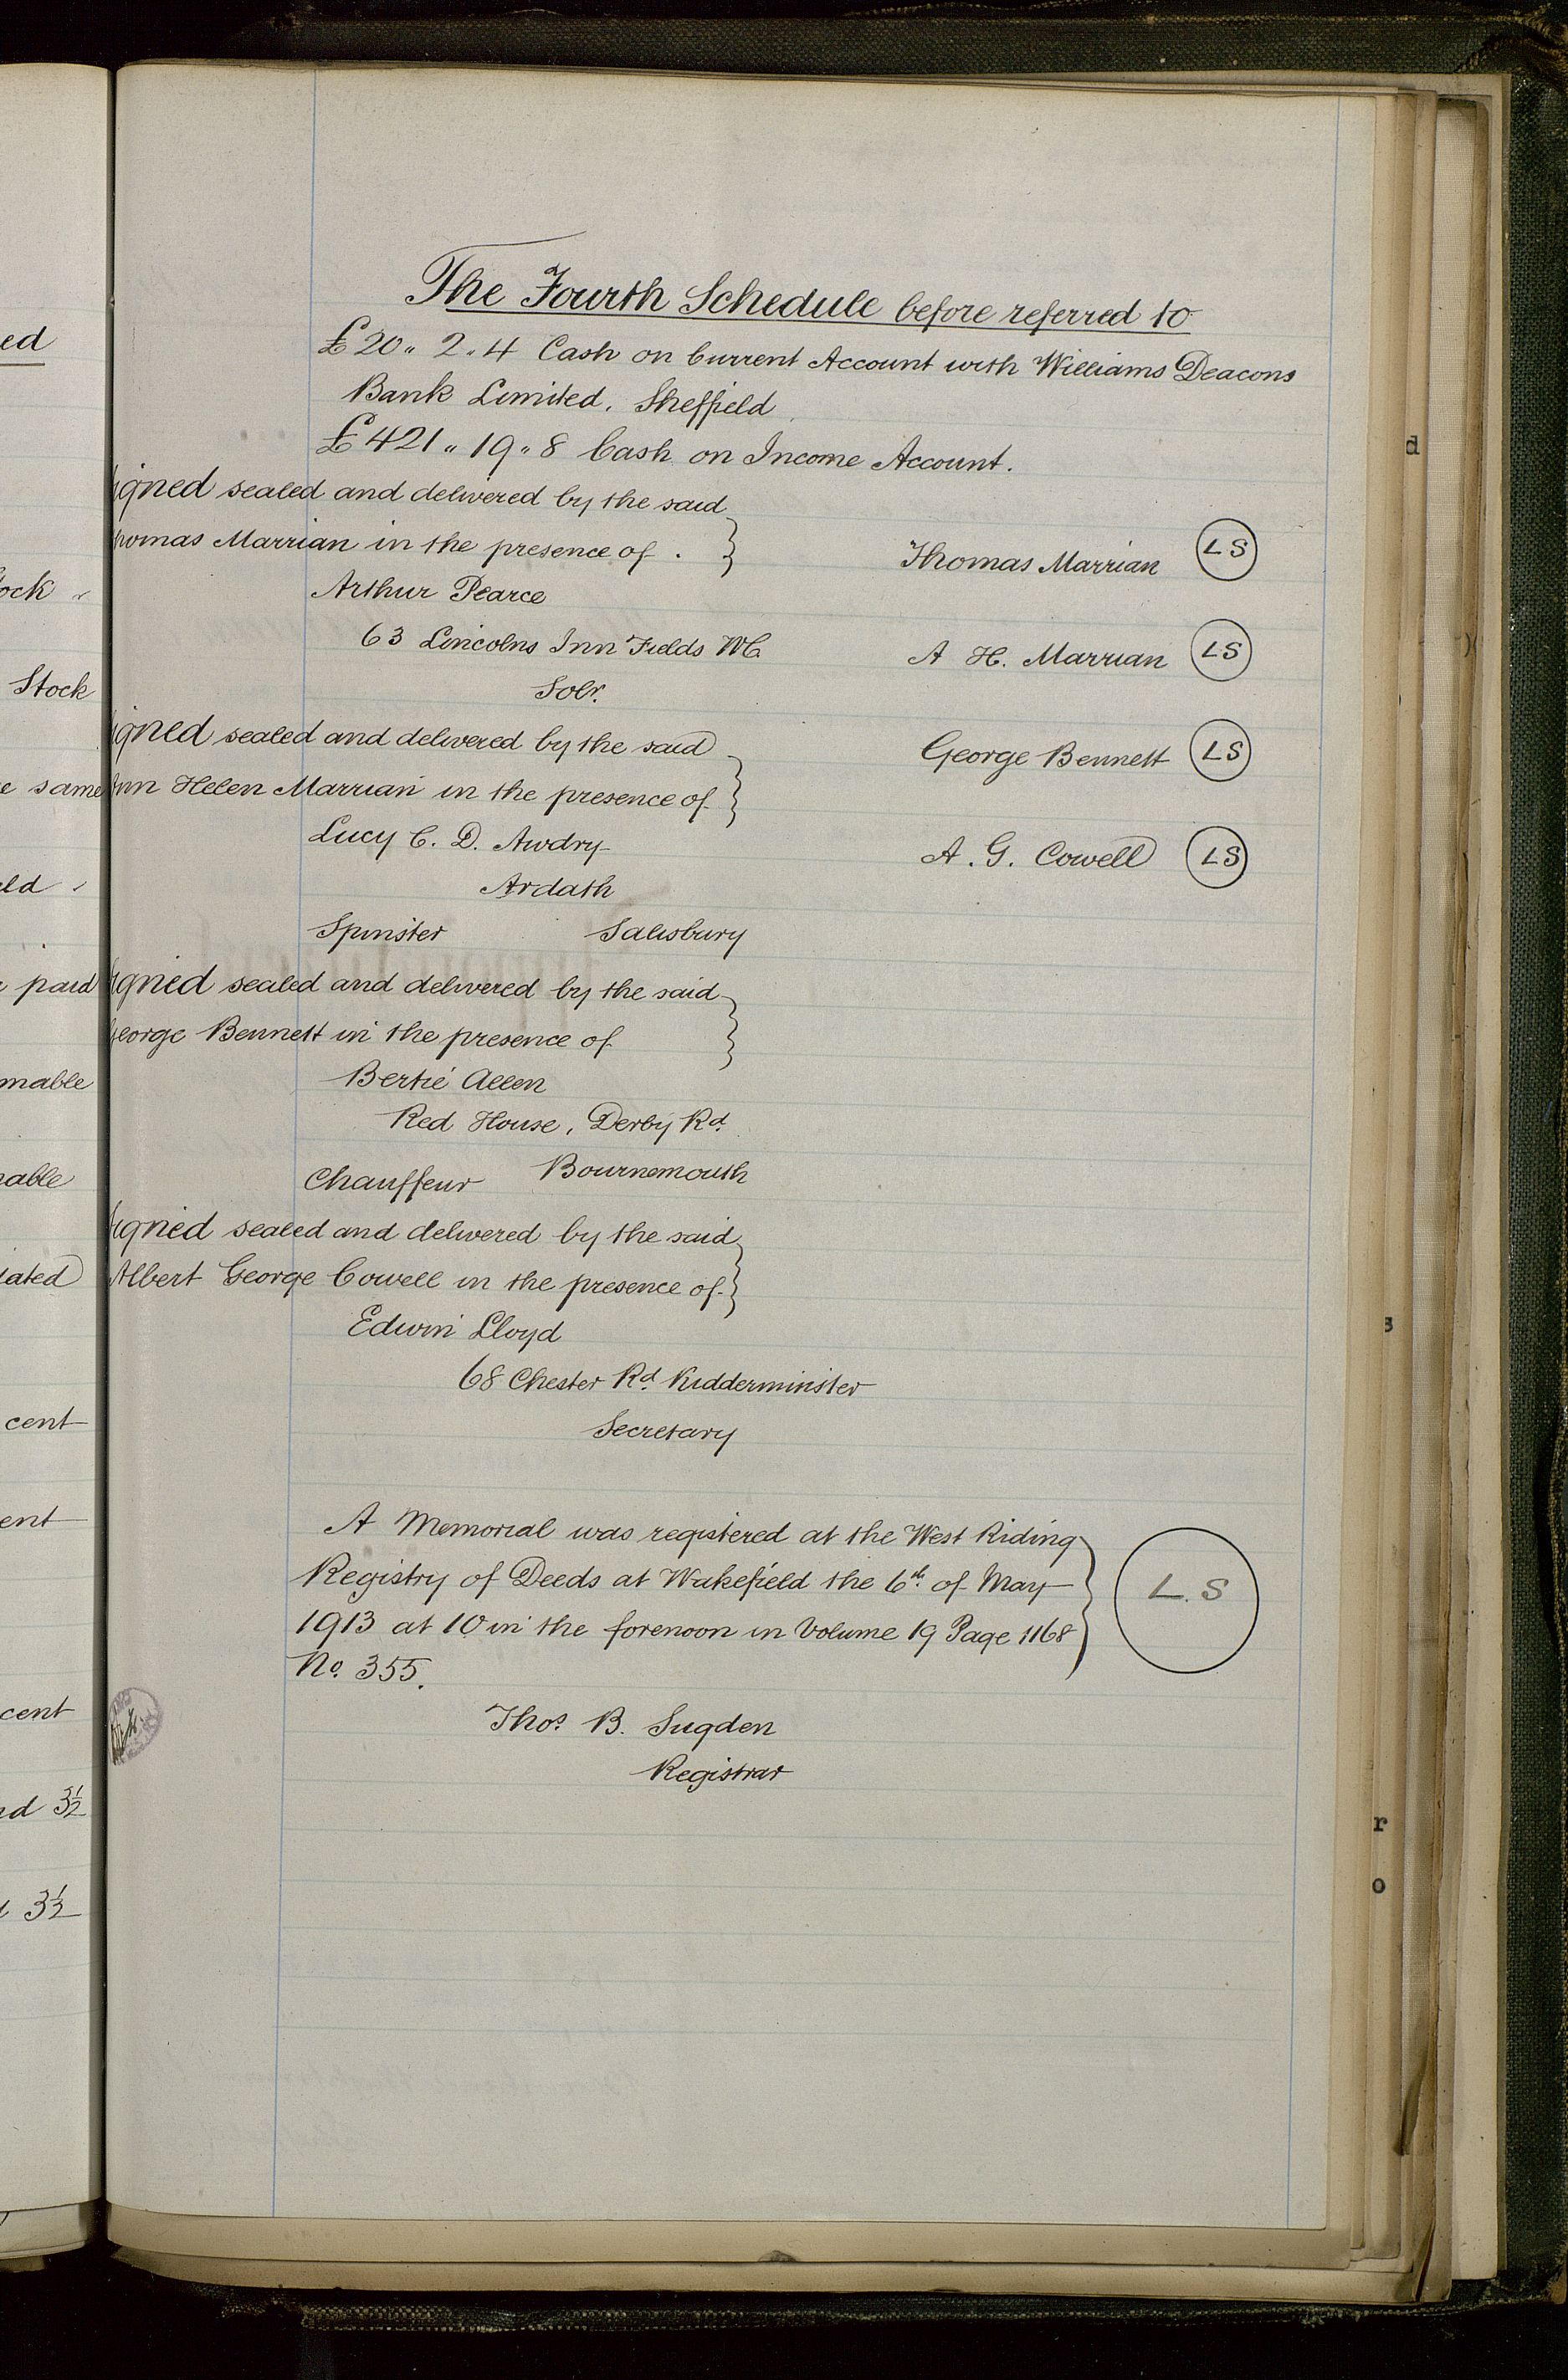 The Fourth Schedule before referred to
£20 " 2 " 4 Cash on Current Account with Williams Deacons
Bank Limited, Sheffield
£421 " 19 " 8 Cash on Income Account.
igned sealed and delivered by the said
homas Marrian in the presence of .
Arthur Pearce
63 Lincolns Inn Fields WC
Solr.
Thomas Marrian LS
A H. Marrian LS
George Bennett LS
A. G. Cowell LS
igned sealed and delivered by the said
Ann Helen Marrian in the presence of
Lucy C. D. Awdry
Ardath
Spinster Salisbury
igned sealed and delivered by the said
George Bennett in the presence of
Bertie Allen
Red House, Derby Rd.
Chauffeur Bournemouth
igned sealed and delivered by the said
Albert George Cowell in the presence of
Edwin Lloyd
68 Chester Rd. Kidderminister
Secretary
A Memorial was registered at the West Riding
Registry of Deeds at Wakefield the 6th of May
1913 at 10 in the forenoon in Volume 19 Page 1168
No. 355.
L. S
Thos. B. Sugden
Registrar
ed
ock "
Stock
e same
eld "
paid
mable
able
iated
cent
ent
cent
nd 3½
3½
d
s
r
o